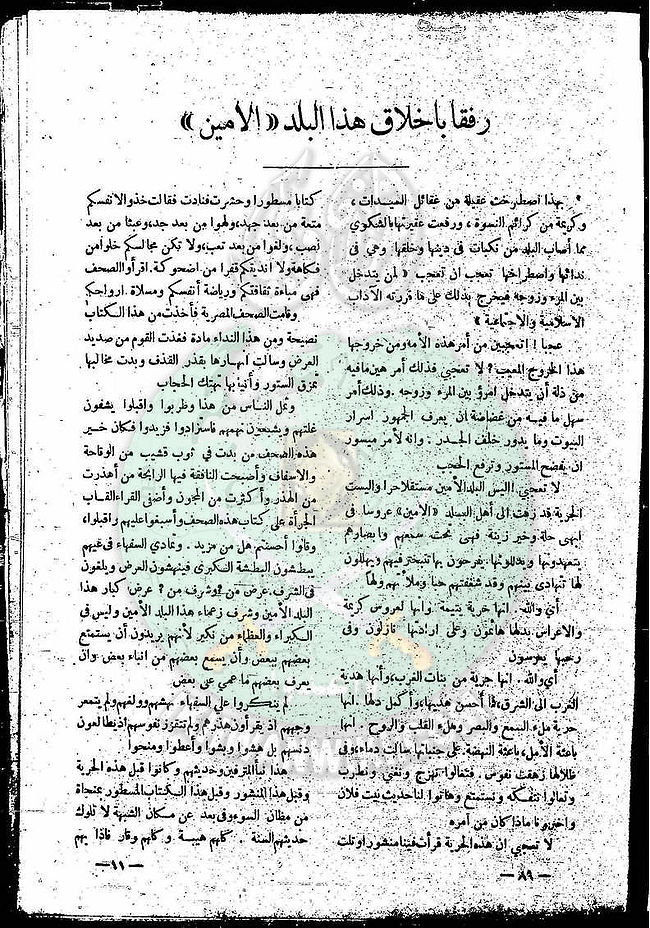 رفقا باخلاق هذا البلد «الأمين»
بهذا اصطرخت عقيلة من عقائل السيدات ،
وكريمة من كرائم النسوة ، ورفعت عقيرتها بالشكوى
مما أصاب البلد من نكبات فى دينها وخلقها. وهى فى
ندائها واصطراخها تعجب ان تعجب « لمن يتدخل
بين المرء وزوجه فيخرج بذلك على ما قررته الآداب
الاسلامية والاجتماعية »
عجبا ! اتعجبين من أمر هذه الأمه ومن خروجها
هذا الخروج المعيب؟ لا تعجبي فذلك أمر هين ما فيه
من ذلة أن يتدخل امرؤ بين المرء وزوجه . وذلك أمر
سهل ما فيه من غضاضة ان يعرف الجمهور أسرار
البيوت وما يدور خلف الجدر . وانه لأمر ميسور
ان يفضح المستور وترفع الحجب
لا تعجبي! اليس البلد الأمين مستقلا حرا واليست
الحرية قد زفت الى أهل البلد «الأمين» عروسا فى
ابهى حلة وخير زينة فهى تحت سمعهم وابصارهم
يتعهدونها ويدللونها يفرحون بها تتبختر فيهم ويهللون
لها تتهادى بينهم وقد شغفتهم حبا وملأتهم ولها
أي والله . انها حرية يتيمة وانها لعروس كريمة
والاعراس بدلها هائمون وعلى ارادتها نازلون وفى
رحبها يعرسون
أي والله . انها حرية من بنات الغرب، وأنها هدية
الغرب الى الشرق، فما أحسن هديها، وأكمل دلها . انها
حرية ملء السمع والبصر وملء القلب والروح . انها
باعثة الأمل، باعثة النهضة. على جنباتها سالت دماء، وفى
ظلالها زهقت نفوس . فتعالوا نهزج ونغني ونطرب
وتعالوا نتفكه ونستمتع وهاتوا لنا حديث بيت فلان
واخبرونا ماذا كان من أمره
لا تعجبي ان هذه الحرية قرأت فينا منشورا وتلت
— ٨٩ —
كتابا مسطورا وحشرت فنادت فقالت خذوا لانفسكم
متعة من بعد جهد، ولهوا من بعد جد، وعبثا من بعد
نصب ، ولغوا من بعد تعب، ولا تكن مجالسكم خلوا من
فكاهة ولا انديتكم قفرا من اضحوكة. اقرأوا الصحف
فهى مباءة ثقافتكم ورياضة أنفسكم ومسلاة ارواحكم
وقامت الصحف المصرية فأخذت من هذا الكتاب
نصيحة ومن هذا النداء مادة فغذت القوم من صديد
العرض وسالت أنهارها بقذر القذف وبدت مخالبها
تمزق الستور وأنيابها تهتك الحجاب
وثمل الناس من هذا وطربوا واقبلوا يشفون
غلتهم ويشبعون نهمهم فاستزادوا فزيدوا فكان خير
هذه الصحف من بدت في ثوب قشيب من الوقاحة
والاسفاف وأصبحت النافقة فيها الرابحة من أهذرت
من الهذر وأكثرت من المجون وأضفى القراء القاب
الجرأة على كتاب هذه الصحف وأسبغوا عليهم واقبلوا،
وقالوا أحسنتم هل من مزيد . وتمادى السفهاء فى غيهم
يبطشون البطشة الكبرى فينهشون العرض ويلغون
فى الشرف. عرض من ? وشرف من ? عرض كبار هذا
البلد الأمين وشرف زعماء هذا البلد الأمين وليس فى
الكبراء والعظماء من نكير لأنهم يريدون أن يستمتع
بعضهم ببعض وأن يسمع بعضهم من أنباء بعض وان
يعرف بعضهم ما عمي على بعض
لم ينكروا على السفهاء نهشهم وولغهم ولم يتمعر
وجههم اذ يقرأون هذرهم ولم تتقزز نفوسهم اذ يطالعون
دنسهم بل هشوا وبشوا وأعطوا ومنحوا
هذا نبأ المترفين وحديثهم وكانوا قبل هذه الحرية
وقبل هذا المنشور وقبل هذا الكتاب المسطور بمنجاة
من مظان السوء وفى بعد عن مكان الشبهة لا تلوك
حديثهم السنة . كلهم هيبة وكلهم وقار فاذا بهم
— ١١ —